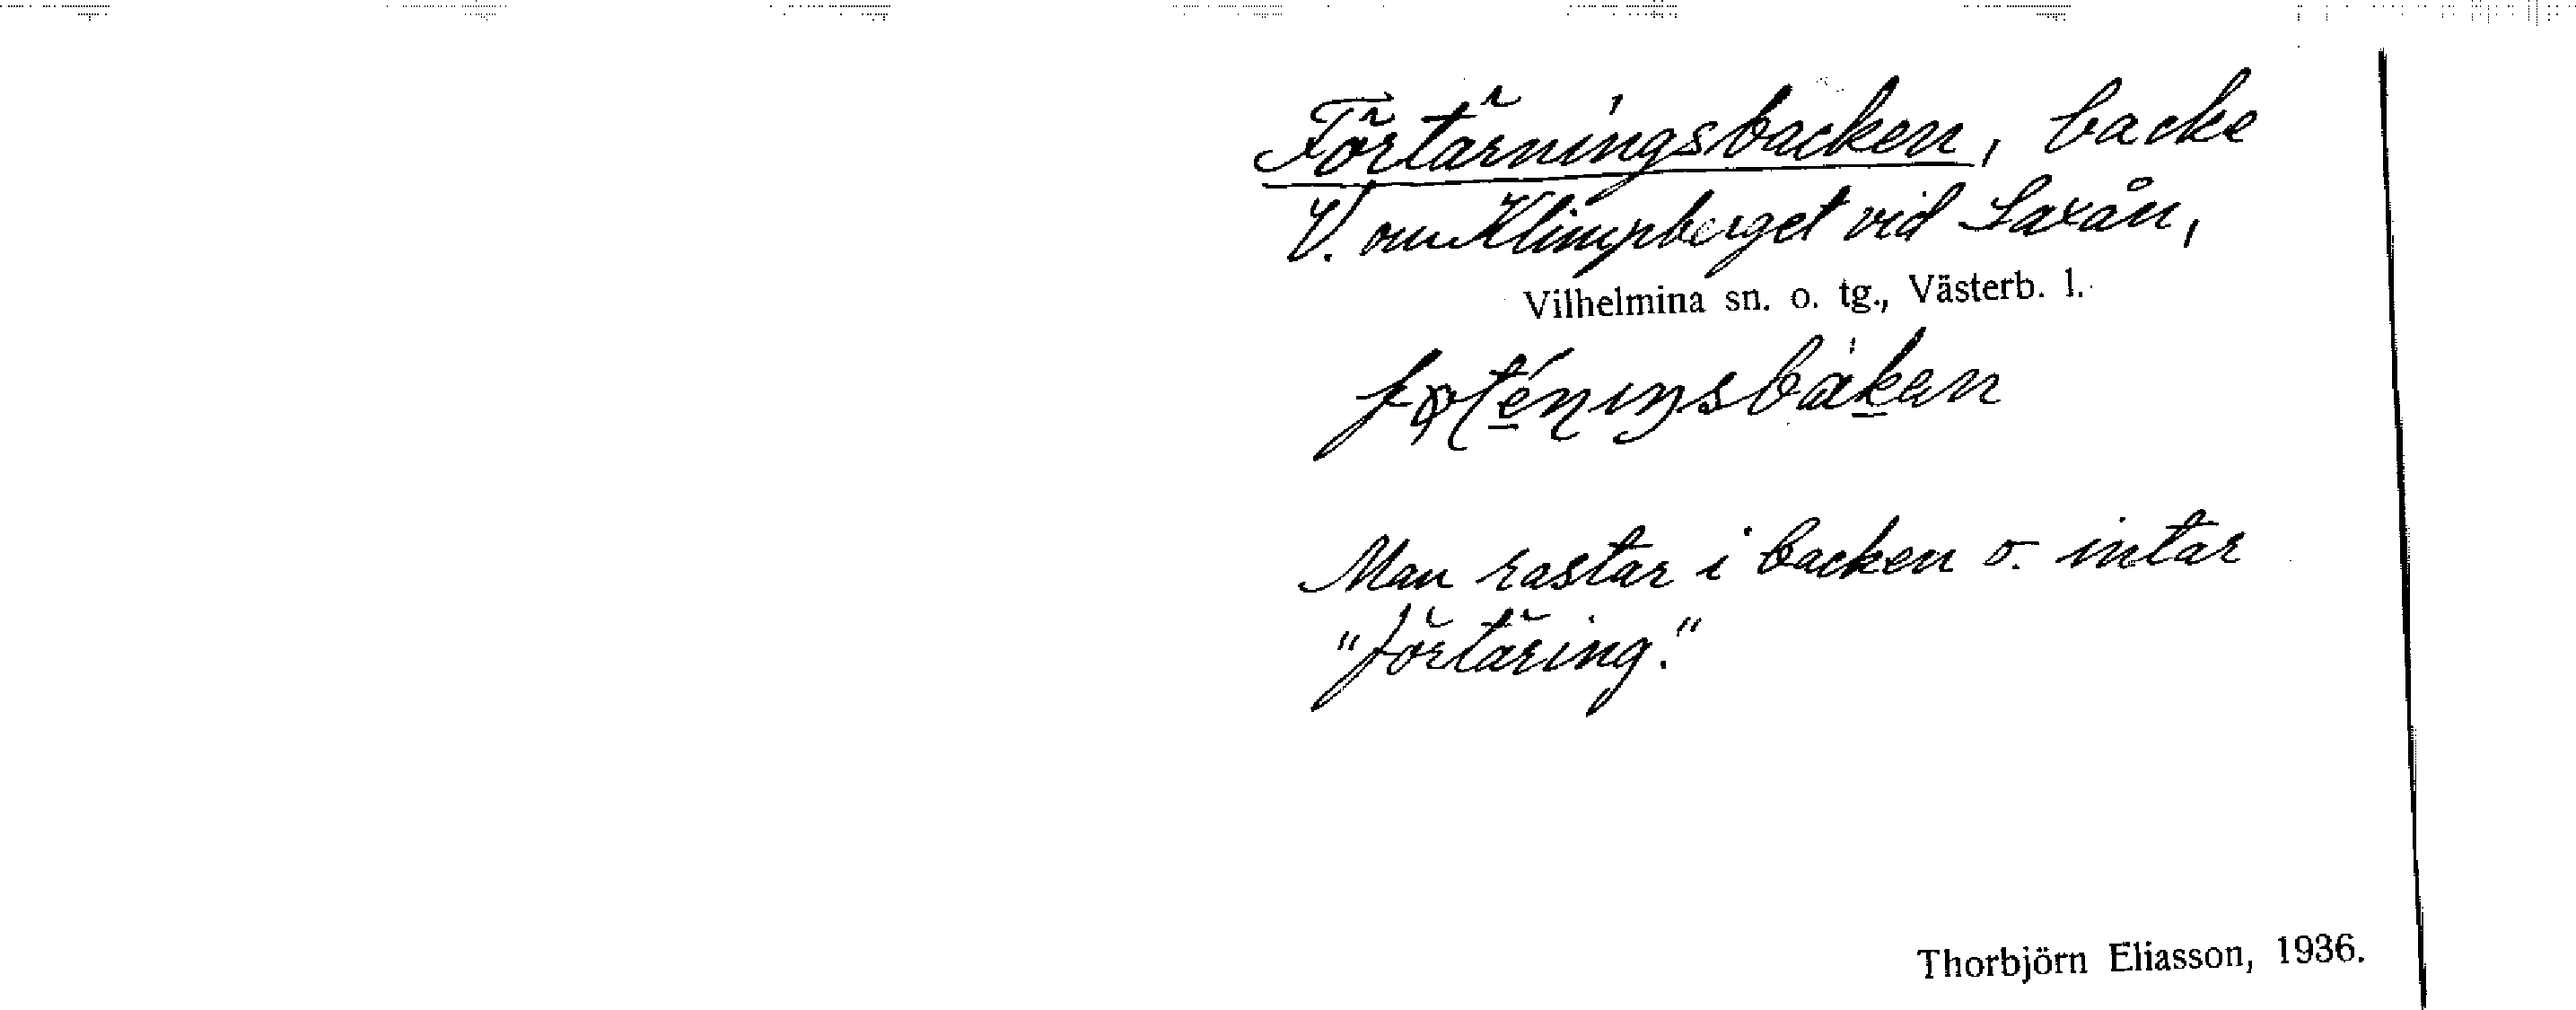 Förtärningsbacken, backe
V. om Klimpberget vid Saxån,
Vilhelmina sn. o. tg., Västerb. l.
Man rastar i backen o. intar
"förtäring."
Thorbjörn Eliasson, 1936.